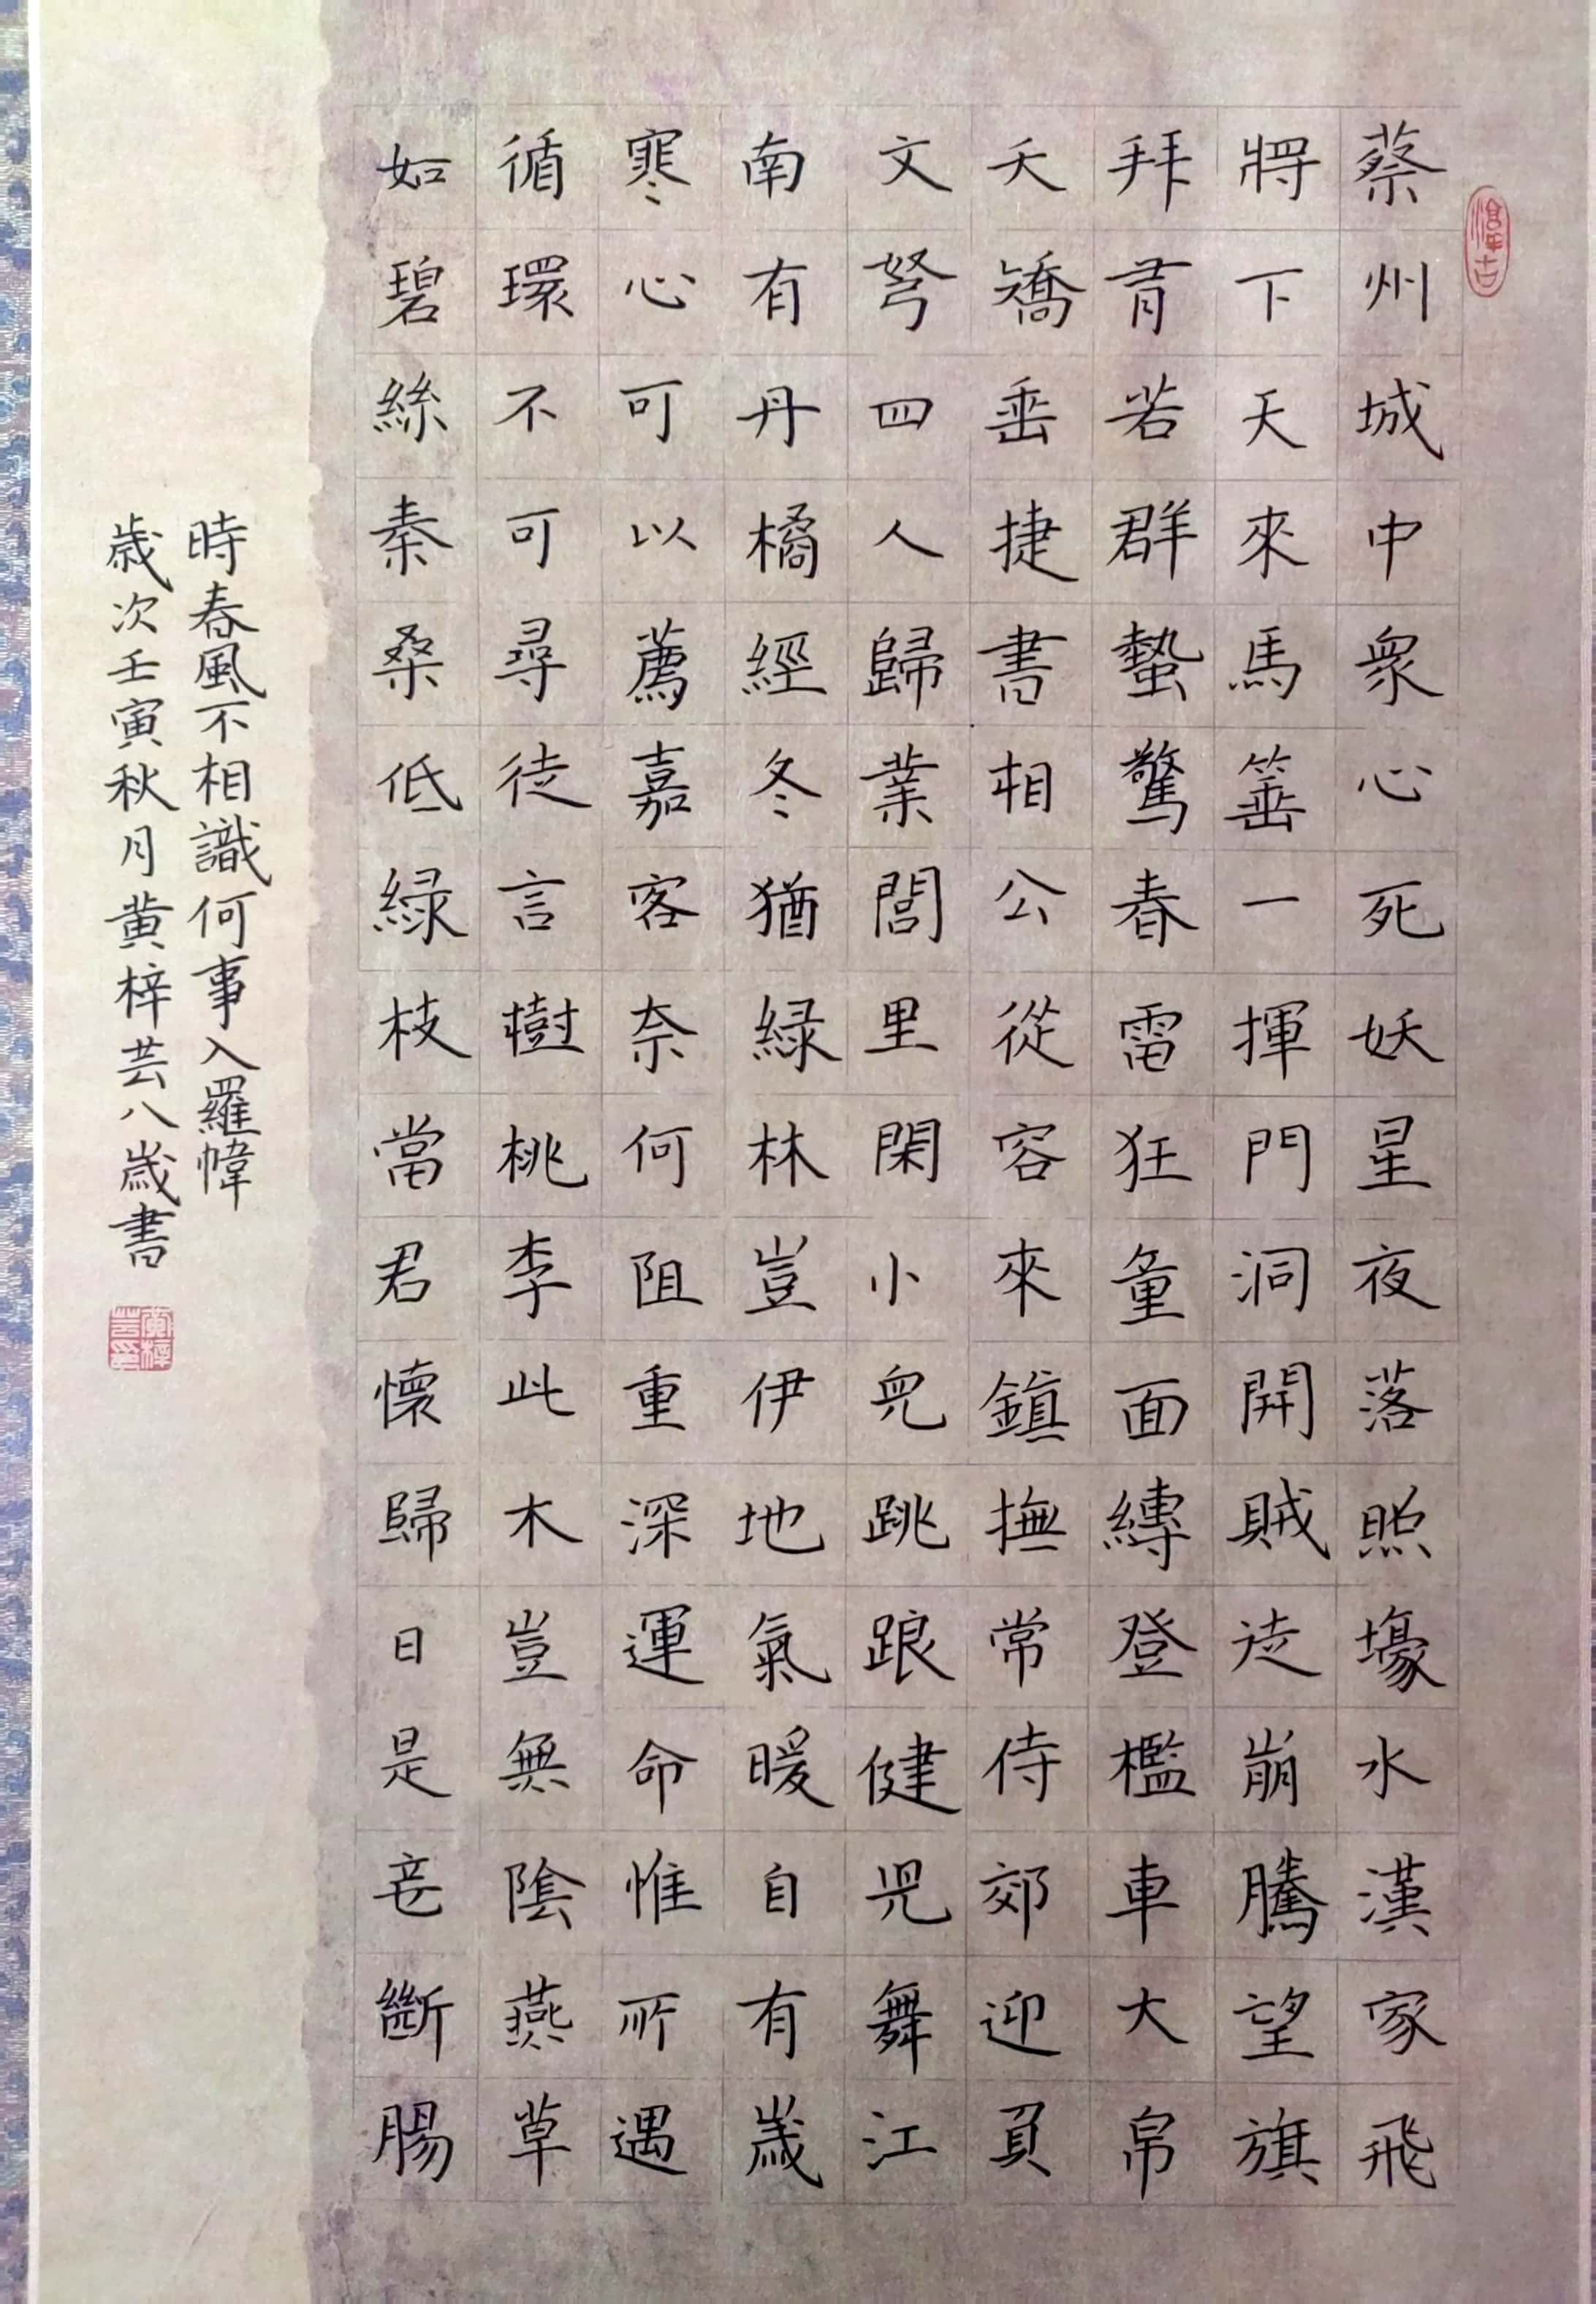 蔡州城中衆心死妖星夜落照壕水漢家飛
將下天來馬箠一揮門洞開賊徒崩騰望旗
拜有若群蟄驚春雷狂童面縛登檻車大帛
夭矯垂捷書相公從容來鎮撫常侍郊迎負
文弩四人歸業閭里閑小兒跳踉健兒舞江
南有丹橘經冬猶緑林豈伊地氣暖自有歲
寒心可以薦嘉客奈何阻重深運命惟所遇
循環不可尋徒言樹桃李此木豈無陰燕草
如碧絲秦桑低緑枝當君懷歸日是妾斷腸
時春風不相識何事入羅幃
歲次壬寅秋月黄梓芸八歲書
黄梓芸印